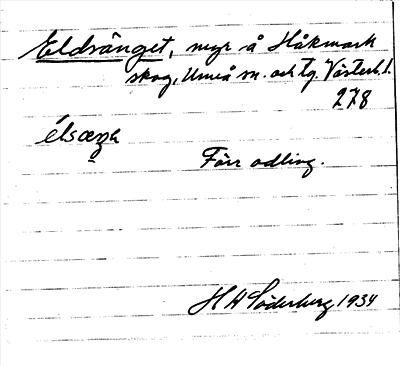 Eldsänget, myr å Håkmark
skog, Umeå sn. och tg. Västerb. l.
278
Förr odling.
H H Söderberg, 1934